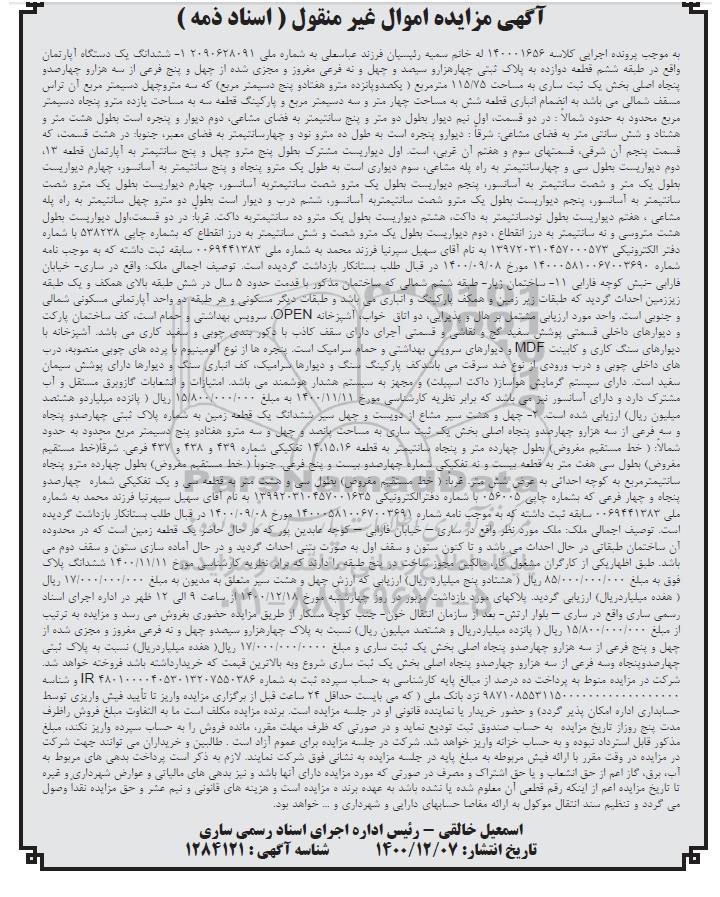 آگهی مزایده اموال غیر منقول ( اسناد ذمه )
به موجب پرونده اجرایی کلاسه ۱۴۰۰۰۱۶۵۶ له خانم سمیه رئیسیان فرزند عباسعلی به شماره ملی ۲۰۹۰۶۲۸۰۹۱ ۱- ششدانگ یک دستگاه آپارتمان
واقع در طبقه ششم قطعه دوازده به پلاک ثبتی چهارهزارو سیصد و چهل و نه فرعی مفروز و مجزی شده از چهل و پنج فرعی از سه هزارو چهارصدو
پنجاه اصلی بخش یک ثبت ساری به مساحت ۱۱۵/۷۵ مترمربع ( یکصدوپانزده مترو هفتادو پنج دسیمتر مربع) که سه متروچهل دسیمتر مربع آن تراس
مسقف شمالی می باشد به انضمام انباری قطعه شش به مساحت چهار متر و سه دسیمتر مربع و پارکینگ قطعه سه به مساحت یازده مترو پنجاه دسیمتر
مربع محدود به حدود شمالاً : در دو قسمت، اول نیم دیوار بطول دو متر و پنج سانتیمتر به فضای مشاعی، دوم دیوار و پنجره است بطول هشت متر و
هشتاد و شش سانتی متر به فضای مشاعی: شرقاً : دیوارو پنجره است به طول ده مترو نود و چهارسانتیمتر به فضای معبر، جنوبا: در هشت قسمت، که
قسمت پنجم آن شرقی، قسمتهای سوم و هفتم آن غربی، است. اول دیواریست مشترک بطول پنج مترو چهل و پنج سانتیمتر به آپارتمان قطعه ۱۳،
دوم دیواریست بطول سی و چهارسانتیمتر به راه پله مشاعی، سوم دیواری است به طول یک مترو پنجاه و پنج سانتیمتر به آسانسور، چهارم دیواریست
بطول یک متر و شصت سانتیمتر به آسانسور، پنجم دیواریست بطول یک مترو شصت سانتیمتربه آسانسور، چهارم دیواریست بطول یک مترو شصت
سانتیمتر به آسانسور، پنجم دیواریست بطول یک مترو شصت سانتیمتربه آسانسور، ششم درب و دیوار است بطول دو مترو چهل سانتیمتر به راه پله
مشاعی ، هفتم دیواریست بطول نودسانتیمتر به داکت، هشتم دیواریست بطول یک مترو ده سانتیمتربه داکت. غربا: در دو قسمت،اول دیواریست بطول
هشت متروسی و نه سانتیمتر به درز انقطاع ، دوم دیواریست بطول یک مترو شصت و شش سانتیمتر به درز انقطاع که بشماره چاپی ۵۳۸۲۳۸ با شماره
دفتر الکترونیکی ۱۳۹۷۲۰۳۱۰۴۵۷۰۰۰۵۷۳ به نام آقای سهیل سپرنیا فرزند محمد به شماره ملی ۰۰۶۹۴۴۱۳۸۳ سابقه ثبت داشته که به موجب نامه
شماره ۱۴۰۰۰۵۸۱۰۰۶۷۰۰۳۶۹۰ مورخ ۱۴۰۰/۰۹/۰۸ در قبال طلب بستانکار بازداشت گردیده است. توصیف اجمالی ملک: واقع در ساری- خیابان
فارابی -نبش کوچه فارابی ۱۱- ساختمان ژیار- طبقه ششم شمالی که ساختمان مذکور با قدمت حدود ۵ سال در شش طبقه بالای همکف و یک طبقه
زیرزمین احداث گردید که طبقات زیر زمین و همکف پارکینگ و انباری می باشد و طبقات دیگر مسکونی و هر طبقه دو واحد آپارتمانی مسکونی شمالی
و جنوبی است. واحد مورد ارزیابی مشتمل بر هال و پذیرایی، دو اتاق خواب، آشپزخانه OPEN، سرویس بهداشتی و حمام است، کف ساختمان پارکت
و دیوارهای داخلی قسمتی پوشش سفید کج و نقاشی و قسمتی آجرای دارای سقف کاذب با دکور بندی چوبی و سفید کاری می باشد. آشپزخانه با
دیوارهای سنگ کاری و کابینت MDF و دیوارهای سرویس بهداشتی و حمام سرامیک است. پنجره ها از نوع آلومینیوم با پرده های چوبی منصوبه، درب
های داخلی چوبی و درب ورودی از نوع ضد سرقت می باشدکف پارکینگ سنگ و دیوارها سرامیک، کف انباری سنگ و دیوارها دارای پوشش سیمان
سفید است. دارای سیستم گرمایش هواساز( داکت اسپیلت) و مجهز به سیستم هشدار هوشمند می باشد. امتیازات و انشعابات گازوبرق مستقل و آب
مشترک دارد و دارای آسانسور نیز می باشد که برابر نظریه کارشناسی مورخ ۱۴۰۰/۱۱/۱۱ به مبلغ ۱۵/۸۰۰/۰۰۰/۰۰۰ ریال ( پانزده میلیاردو هشتصد
میلیون ریال) ارزیابی شده است. ۲- چهل و هشت سیر مشاع از دویست و چهل سیر ششدانگ یک قطعه زمین به شماره پلاک ثبتی چهارصدو پنجاه
و سه فرعی از سه هزارو چهارصدو پنجاه اصلی بخش یک ثبت ساری به مساحت پانصد و چهل و سه مترو هفتادو پنج دسیمتر مربع محدود به حدود
شمالاً: ( خط مستقیم مفروض) بطول چهارده متر و پنجاه سانتیمتر به قطعه ۱۴،۱۵،۱۶ تفکیکی شماره ۴۳۹ و ۴۳۸ و ۴۳۷ فرعی. شرقاً(خط مستقیم
مفروض) بطول سی هفت متر به قطعه بیست و نه تفکیکی شماره چهارصدو بیست و پنج فرعی. جنوباً ( خط مستقیم مفروض) بطول چهارده مترو پنجاه
سانتیمترمربع به کوچه احداثی به عرض شش متر. غربا: ( خط مستقیم مفروض) بطول سی و هشت متر به قطعه سی و یک تفکیکی شماره چهارصدو
پنجاه و چهار فرعی که بشماره چاپی ۰۵۶۰۰۵ با شماره دفترالکترونیکی ۱۳۹۹۲۰۳۱۰۴۵۷۰۰۱۶۳۵ به نام آقای سهیل سپهرنیا فرزند محمد به شماره
ملی ۰۰۶۹۴۴۱۳۸۳ سابقه ثبت داشته که به موجب نامه شماره ۱۴۰۰۰۵۸۱۰۰۶۷۰۰۳۶۹۱ مورخ ۱۴۰۰/۰۹/۰۸ در قبال طلب بستانکار بازداشت گردیده
است. توصیف اجمالی ملک: ملک مورد نظر واقع در ساری – خیابان فارابی – کوچه عابدین پور که در حال حاضر یک قطعه زمین است که در محدوده
آن ساختمان طبقاتی در حال احداث می باشد و تا کنون ستون و سقف اول به صورت بتنی احداث گردید و در حال آماده سازی ستون و سقف دوم می
باشد. طبق اظهاریکی از کارگران مشغول کار، مالکین مجوز ساخت در پنج طبقه را دارند که برابر نظریه کارشناسی مورخ ۱۴۰۰/۱۱/۱۱ ششدانگ پلاک
فوق به مبلغ ۸۵/۰۰۰/۰۰۰/۰۰۰ ریال ( هشتادو پنج میلیارد ریال) ارزیابی که ارزش چهل و هشت سیر متعلق به مدیون به مبلغ ۱۷/۰۰۰/۰۰۰/۰۰۰ ریال
( هفده میلیاردریال) ارزیابی گردید. پلاکهای مورد بازداشت مزبور در روز چهارشنبه مورخ ۱۴۰۰/۱۲/۱۸ از ساعت ۹ الی ۱۲ ظهر در اداره اجرای اسناد
رسمی ساری واقع در ساری – بلوار ارتش- بعد از سازمان انتقال خون- جنب کوچه مسکار از طریق مزایده حضوری بفروش می رسد و مزایده به ترتیب
از مبلغ ۱۵/۸۰۰/۰۰۰/۰۰۰ ریال ( پانزده میلیاردریال و هشتصد میلیون ریال) نسبت به پلاک چهارهزارو سیصدو چهل و نه فرعی مفروز و مجزی شده از
چهل و پنج فرعی از سه هزارو چهارصدو پنجاه اصلی بخش یک ثبت ساری و مبلغ ۱۷/۰۰۰/۰۰۰/۰۰۰ ریال( هفده میلیاردریال) نسبت به پلاک ثبتی
چهارصدوپنجاه وسه فرعی از سه هزارو چهارصدو پنجاه اصلی بخش یک ثبت ساری شروع وبه بالاترین قیمت که خریدارداشته باشد فروخته خواهد شد.
شرکت در مزایده منوط به پرداخت ده درصد از مبالغ پایه کارشناسی به حساب سپرده ثبت به شماره IR ۴۸۰۱۰۰۰۰۴۰۵۳۰۱۳۲۰۷۵۵۰۳۸۶ و شناسه
نزد بانک ملی ( که می بایست حداقل ۲۴ ساعت قبل از برگزاری مزایده واریز تا تأیید فیش واریزی توسط
حسابداری اداره امکان پذیر گردد) و حضور خریدار یا نماینده قانونی او در جلسه مزایده است. برنده مزایده مکلف است ما به التفاوت مبلغ فروش راظرف
مدت پنج روزاز تاریخ مزایده به حساب صندوق ثبت تودیع نماید و در صورتی که ظرف مهلت مقرر، مانده فروش را به حساب سپرده واریز نکند، مبلغ
مذکور قابل استرداد نبوده و به حساب خزانه واریز خواهد شد. شرکت در جلسه مزایده برای عموم آزاد است . طالبین و خریداران می توانند جهت شرکت
در مزایده در وقت مقرر با ارائه فیش مربوطه به مبلغ پایه در جلسه مزایده به نشانی فوق شرکت نمایند. لازم به ذکر است پرداخت بدهی های مربوط به
آب، برق، گاز اعم از حق انشعاب و یا حق اشتراک و مصرف در صورتی که مورد مزایده دارای آنها باشد و نیز بدهی های مالیاتی و عوارض شهرداری و غیره
تا تاریخ مزایده اعم از اینکه رقم قطعی آن معلوم شده یا نشده باشد به عهده برنده ه مزایده است و هزینه های قانونی و نیم عشر و حق مزایده نقدا وصول
می گردد و تنظیم سند انتقال موکول به ارائه مفاصا حسابهای دارایی و شهرداری و ... خواهد بود.
اسمعیل خالقی – رئیس اداره اجرای اسناد رسمی ساری
تاریخ انتشار: ۱۴۰۰/۱۲/۰۷ شناسه آگهی : ۱۲۸۴۱۲۱
۰۲۱-۸۸۳۴۹۶۷۰-۵